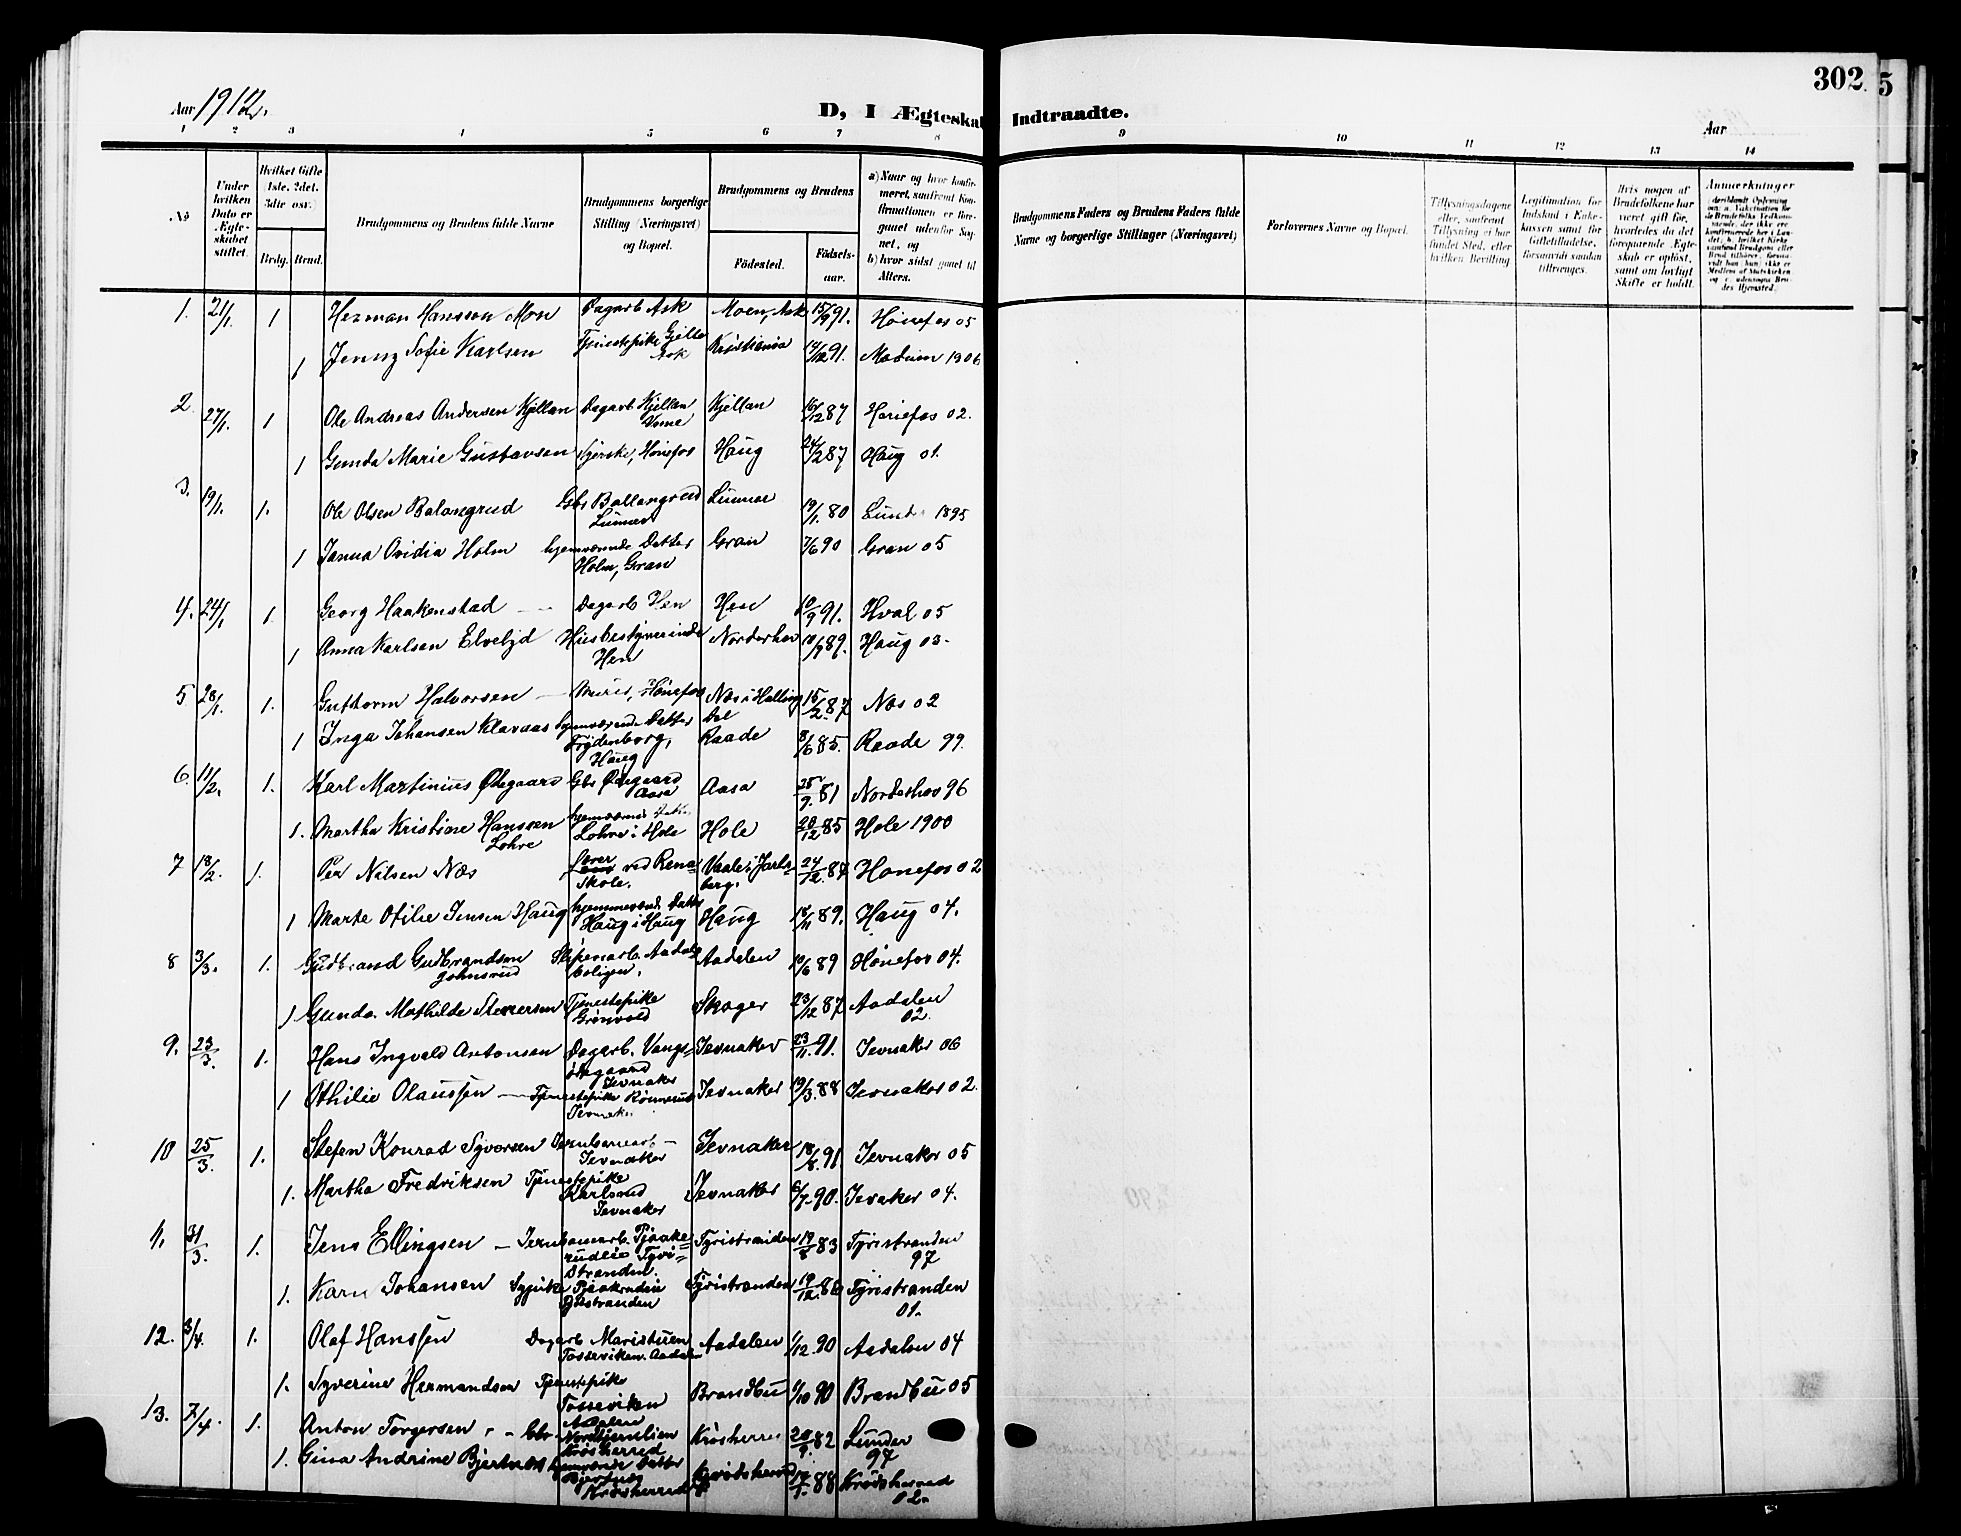 302. 5
Aar 1912.
D, I Ægteskab Indtraadte.
Aar
1 2 3 4 5 6 7 8 9 10 11 12 13 14
No
Under hvilken Dato er Ægteskabet stiftet.
Hvilket Gifte 1ste. 2det. 3die osv.)
Brdg. Brud.
Brudgommens og Brudens fulde Navne
Brudgommens borgerlige Stilling (Næringsvei) og Bopæl.
Brudgommens og Brudens
Fødested.
Fødselsaar.
a) Naar og hvor konfirmeret, saafremt Konfirmationen er foregaaet udenfor Sognet, og
b) hvor sidst gaaet til Alters.
Brudgommens Faders og Brudens Faders fulde Navne og borgerlige Stillinger (Næringsvei)
Forlovernes Navne og Bopæl.
Tillysningsdagene eller, saafremt Tillysning ei har fundet Sted, efter hvilken Bevilling
Legitimation for Indskud i Enkekassen samt for Giftetilladelse, forsaavidt saadan tiltrænges.
Hvis nogen af Brudefolkene har været gift før, hvorledes da det foregaaende Ægteskab er opløst, samt om lovligt Skifte er holdt.
Anmærkninger
1. 21/1. 1 Herman Hansson Mon Dagarb Ask Moen, Ask 15/9 91. Hønefos 05
1 Jenny Sofie Karlsen Tjenestepike Gjille Ask Kristiania 14/12 91. Modum 1906
2 27/1. 1 Ole Andreas Andersen Kjellan Dagarb Kjellan Veme Kjellan 16/12 87 Hønefos 02.
1 Gunda Marie Gustavsen Syerske, Hønefos Haug 24/2 87 Haug 01.
3. 19/1. 1. Ole Olsen Balangrud Gbr Ballangrud Lunner Lunner 19/1. 80 Lund 1895
1 Janna Ovidia Holm hjemværende Datter Holm, Gran Gran 7/6 90 Gran 05
4. 24/1 1. Georg Haakenstad Dagarb Hen Hen 10/9 91. Hval 05
1 Anna Karlsen Elvelyd Husbestyrerinde Hen Norderhov 10/9 89. Haug 03.
5 28/1. 1. Guthorm Halvorsen Murer, Hønefos Næs i Hallingdal 15/2. 87 Næs 02
1 Inga Johansen Klavaas hjemværende Datter Frydenborg, Haug Raade 8/6 85. Raade 99.
6. 11/2. 1. Karl Martinius Ødegaard Gbr Ødegaard Aasa Aasa 25/9. 81 Norderhov 96
1. Martha Kristine Hanssen Lohre hjemværende Datter Lohre i Hole Hole 20/12 85 Hole 1900
7 18/2. 1. Per Nilsen Næs Lærer ved Rena Skole. Vaale i Jarlsberg. 24/12. 87 Hønefos 02
1 Marte Otilie Jensen Haug hjemmeværende Datter Haug i Haug Haug 18/11 89. Haug 04.
8 3/3. 1. Gudbrand Gudbrandsen Johnsrud Slipenarb. Aadalsboligen. Aadalen 10/6 89 Hønefos 04.
1 Gunda Mathilde Sverersen Tjenestepike Grønvold Skoger 23/12 87 Aadalen 02.
9. 23/3. 1. Hans Ingvald Antonsen Dagarb. Vangsødegaard Jevnaker Jevnaker 23/11. 91. Jevnaker 06
1 Othilie Olaussen Tjenestepike Rønnerud Jevnaker Jevnaker 19/3. 88 Jevnaker 02.
10 25/3. 1. Stefen Konrad Syversen Jernbanearb Jevnaker Jevnaker 18/8. 91 Jevnaker 05
1. Martha Fredriksen Tjenestepike Karlsrud Jevnaker Jevnaker 6/7. 90. Jevaker 04.
11. 31/3. 1. Jens Ellingsen Jernbanearb. Pjaakerudeie Tyristranden. Tyristranden 19/8 83 Tyristranden 97
1. Karn Johansen Sypike Pjaakerudeie Tyristranden Tyristranden 19/12. 86 Tyristranden 01.
12. 3/4. 1. Olaf Hanssen Dagarb Maristuen Tosseviken. Aadalen Aadalen 1/12. 90 Aadalen 04
1. Syverine Hermandsen Tjenestepike Tosseviken Aadalen Brandbu 1/10 90 Brandbu 05
13. 7/4. 1. Anton Torgersen Gbr Nordbjernlien Krødsherred Krødsherred 20/9. 82 Lunder 97
1. Gina Andrine Bjertnæs hjemværende Datter Bjertnæs Krødsherred Krødsherred 14/1. 88 Krødsherred 02.